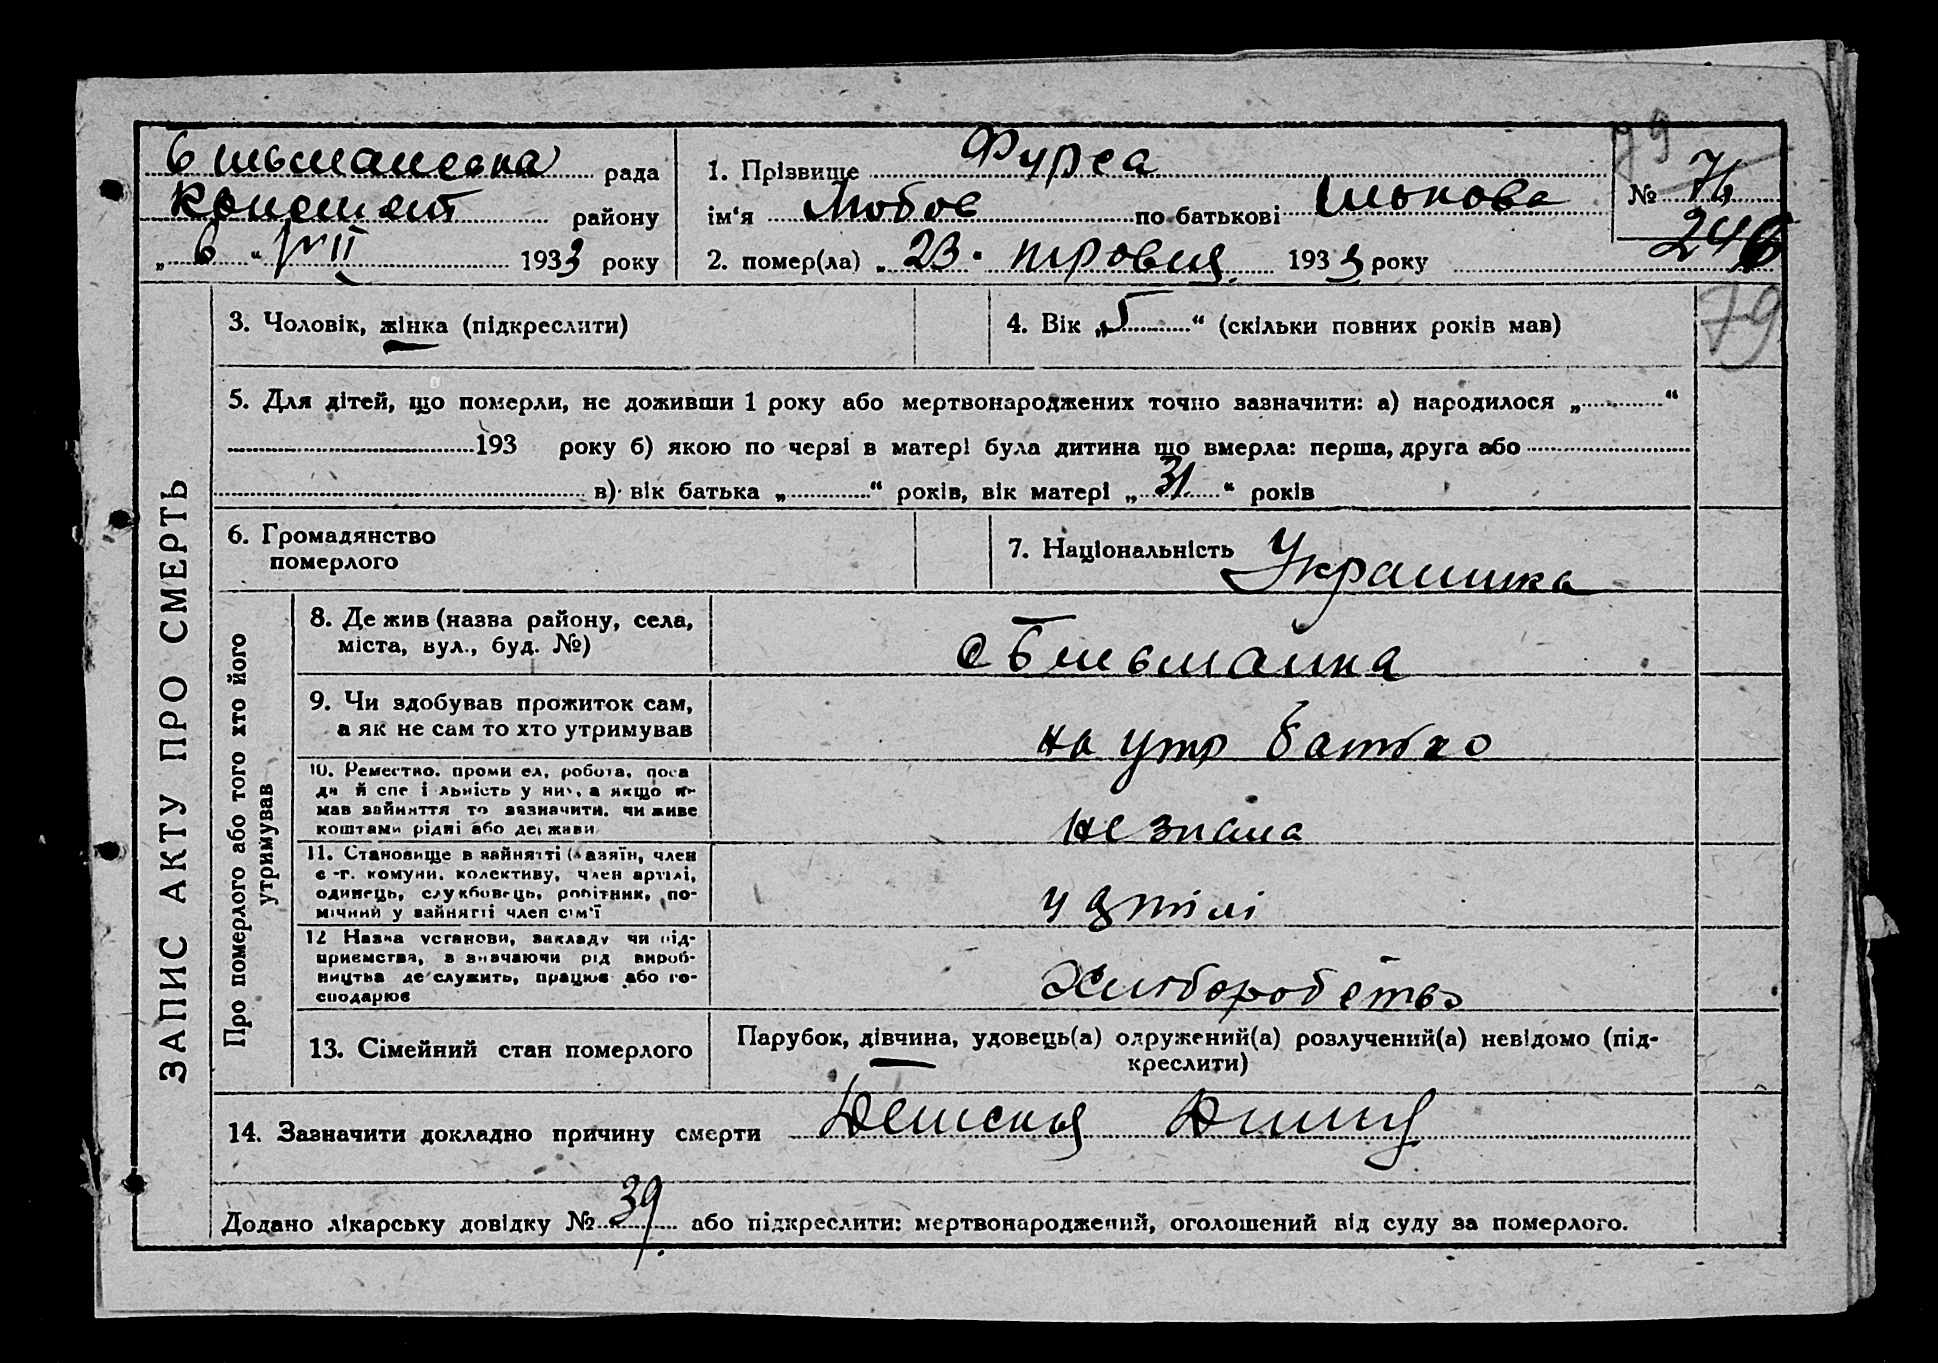 Більманська рада
району
„ 6 “ VII 1933 року
1. Прізвище Фурса
ім‘я Любов по батькові
2. помер(ла) „ 23 · 1933 року
79
№ 76
246
79
ЗАПИС АКТУ ПРО СМЕРТЬ
3. Чоловік, жінка (підкреслити)
4. Вік „ 5 “ (скільки повних років мав)
5. Для дітей, що померли, не доживши 1 року або мертвонароджених точно зазначити: а) народилося „ “
193 року б) якою по черзі в матері була дитина що вмерла: перша, друга або
в) вік батька „ “ років, вік матері „ 31 “ років
6. Громадянство
померлого
7. Національність Украинка
Про померлого або того хто його
утримував
8. Де жив (назва району, села,
міста, вул., буд. №)
с Більманка
9. Чи здобував прожиток сам,
а як не сам то хто утримував
на утр батько
10. Ремество, проми ел, робота, поса
ди й спе і льність у ни , а якщо не
мав зайняття то зазначити, чи живе
коштами рідні або держави
не знала
11. Становище в зайнятті (хазяїн, член
с -г. комуни, колективу, член артілі,
одинець, службовець, робітник, по-
мічний у зайнятті член сім‘ї
у артілі
12 Назва установи, закладу чи під-
приємства, зазначаючи рід вироб-
ництва де служить, працює або го-
сподарює
Хліборобство
13. Сімейний стан померлого
Парубок, дівчина, удовець(а) одружений(а) розлучений(а) невідомо (під-
креслити)
14. Зазначити докладно причину смерти
Додано лікарську довідку № 39 або підкреслити: мертвонароджений, оголошений від суду за померлого.